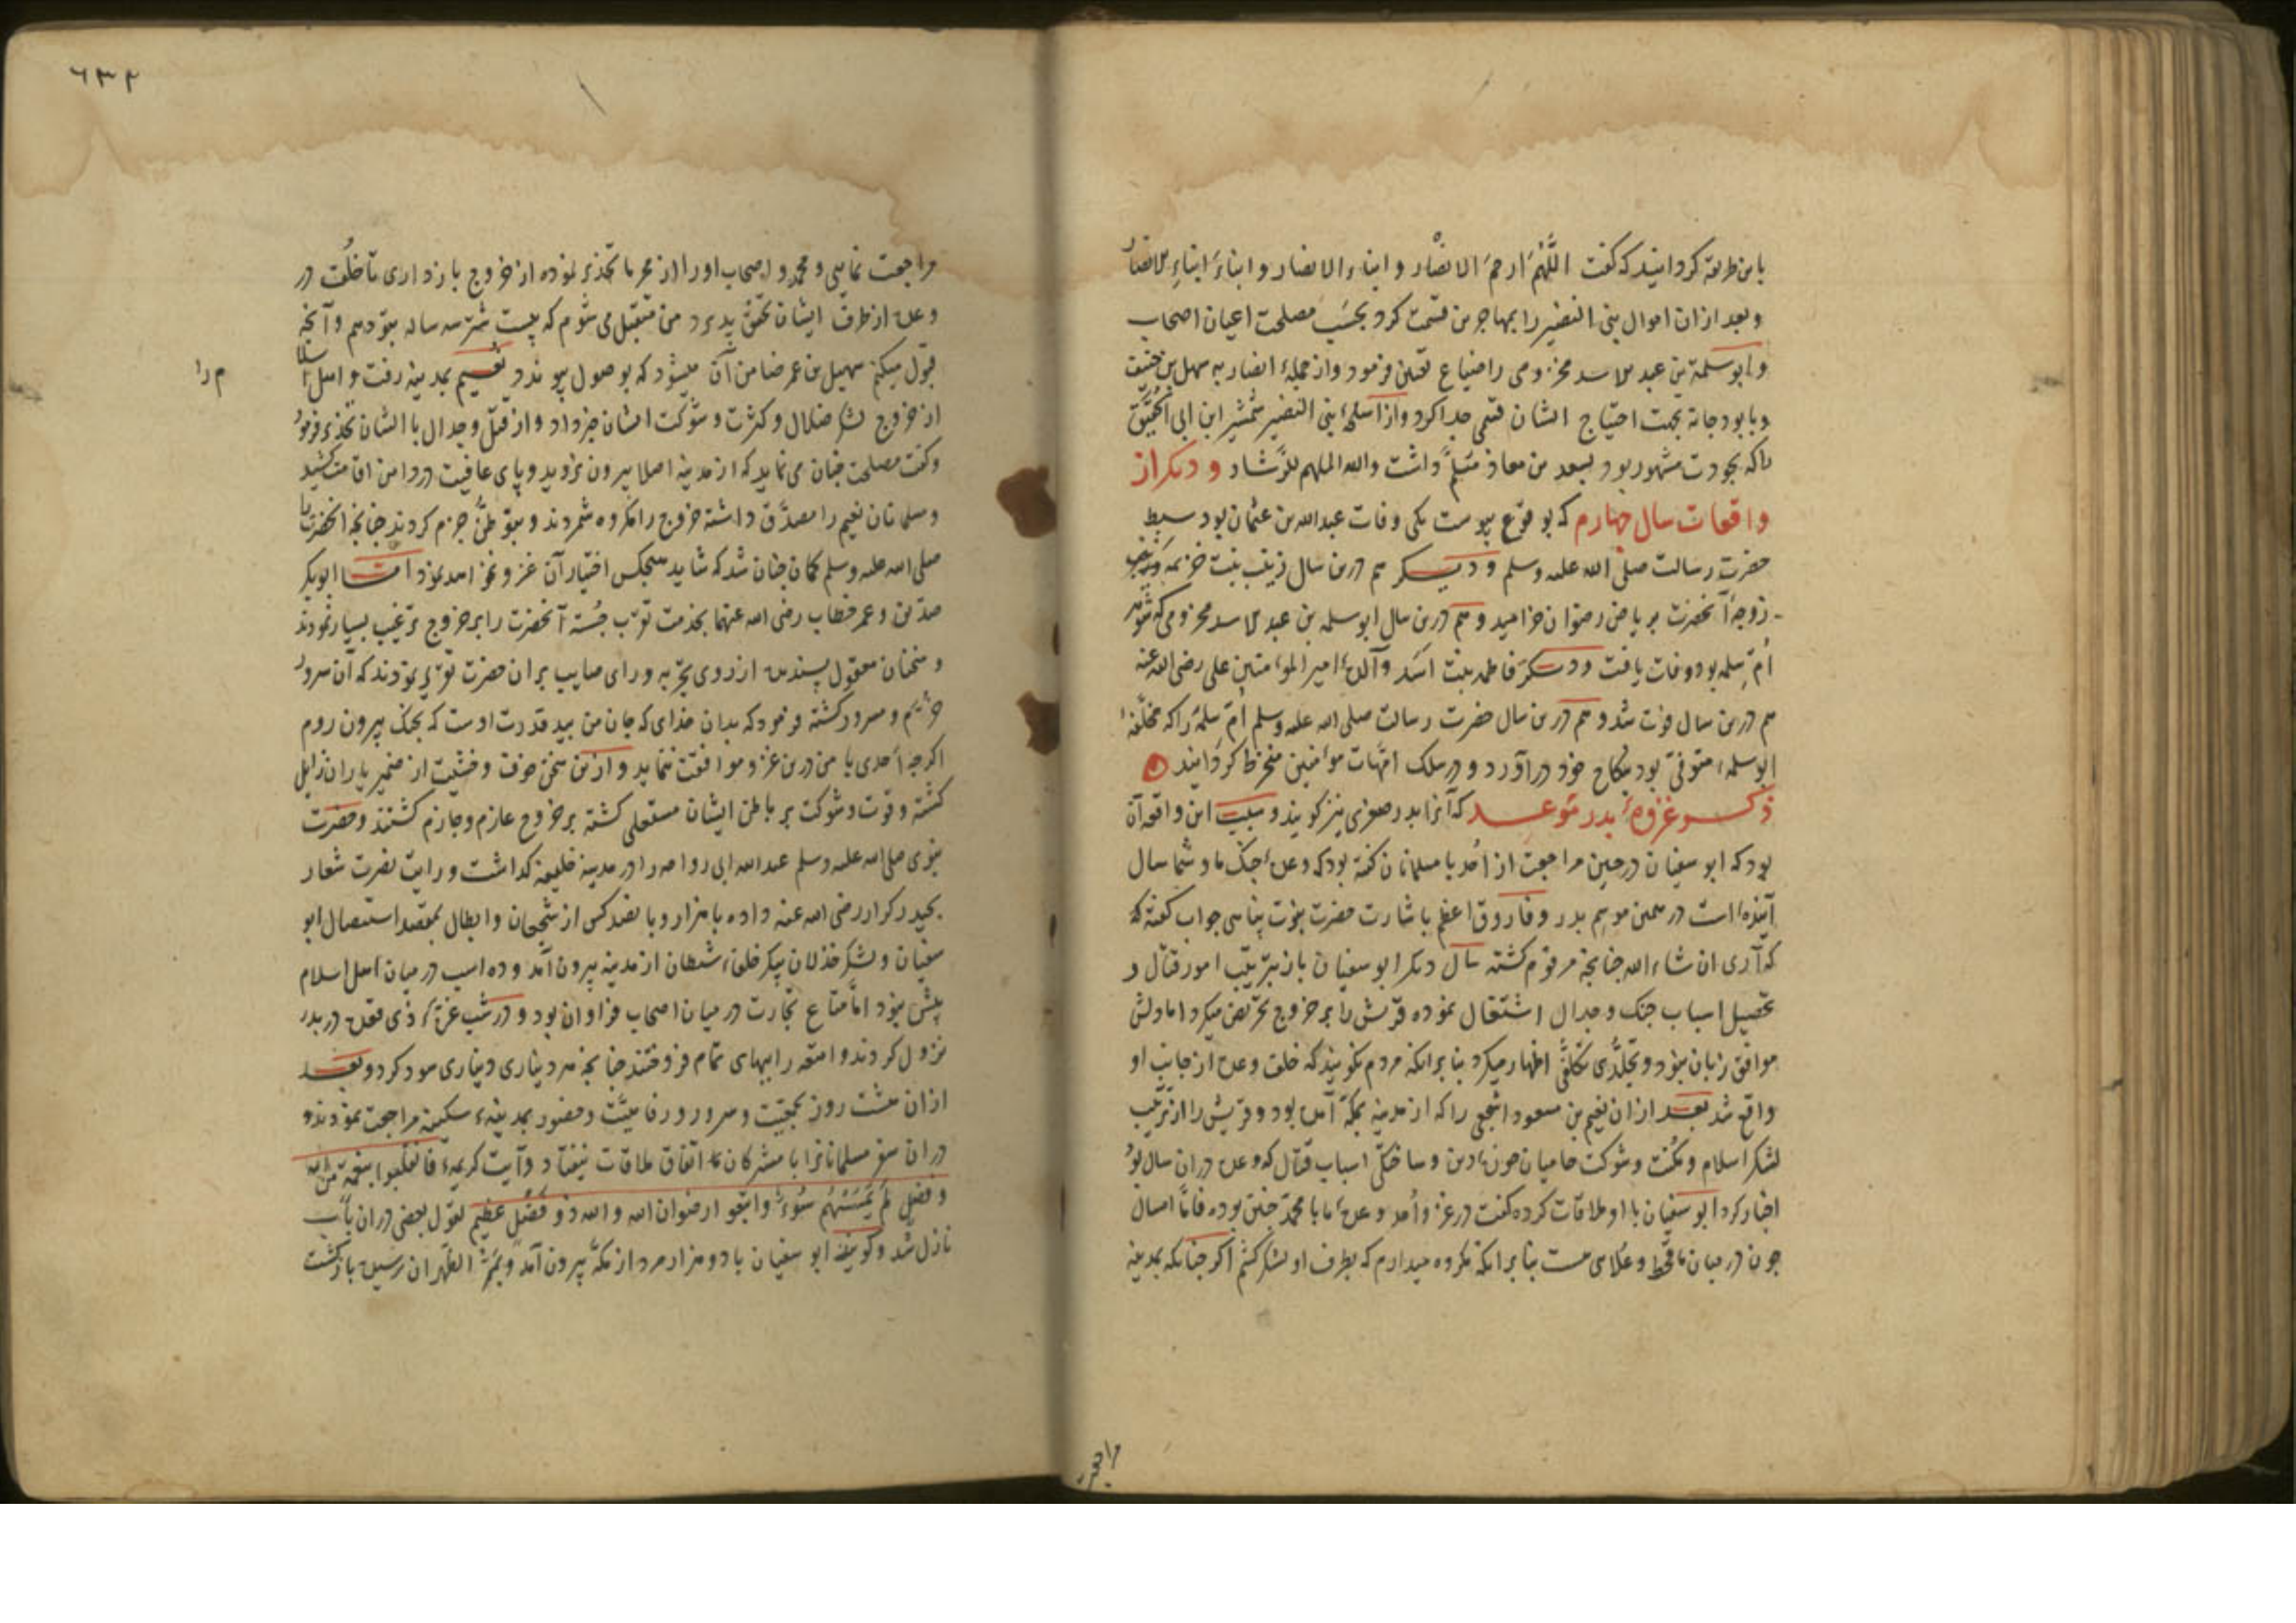 باین طریقه کردانیند که گفت اللَّهُمَّ ارحمَ الانصْار و ابناء الانصار و ابناءَ ابناءِ الانصار
وبعد ازان اموال بنی النضیر را بمهاجرین قسمت کرد بحسَب مصلحت اعیان اصحاب
وابوسلمة بن عبد الاسد مخزومی را ضیاع تعیین فرمود واز جملهٔ انصار به سهل بن حنیف
وبابودجانه بجهت احتیاج ایشان قسمی جدا کرد واز اسلحهٔ بنی النضیر شمشیر ابن ابی الحُقَیق
راکه بجودت مشهور بود بسعد بن معاذ مسَلَّم داشت والله الملهم للرَّشاد و دیکر از
واقعات سال چهارم که بوقوع پیوست یکی وفات عبدالله بن عثمان بود سبط
حضرت رسالت صلی الله علیه وسلم و دیکر هم درین سال زینب بنت خزیمه
زوجهٔ آنحضرت بریاض رضوان خرامید و هم درین سال ابوسلمه بن عبد الاسد مخزومی که شوهر
اُمّ سلمه بود وفات یافت و دیکر فاطمه بنت اسَد والدهٔ امیر المؤمنین علی رضی الله عنه
هم درین سال فوت شد و هم درین سال حضرت رسالت صلی الله علیه وسلم اُمّ سلمه را که مخلّفهٔ
ابوسلمهٔ متوفیّ بود بنکاح خود درآورد و در سلک امّهات مؤمنین منخرط کردانید
ذکر غزوهٔ بدر موعد که آنرا بدر صغری نیز کویند و سبب این واقعه آن
بود که ابو سفیان در حین مراجعت از اُحد با مسلمانان کفته بود که وعدهٔ جنک ما و شما سال
آینده است در همین موسم بدر و فاروق اعظم باشارت حضرت نبوّت پناهی جواب کفته که
که آری ان شاء الله چنانچه مرقوم کشته سال دیکر ابو سفیان باز بترتیب امور قتال و
تحصیل اسباب جنک و جدال اشتغال نموده قریش را بر خروج تحریض میکرد اما دلش
موافق زبان نبود و تجلّدی بتکلّف اظهار میکرد بنا برانکه مردم نکویند که خلف وعده از جانب او
واقع شد بعد ازان نعیم بن مسعود اشجعی را که از مدینه بمکّه آمده بود و قریش را از ترتیب
لشکر اسلام و مکُنت و شوکت حامیان حوزهٔ دین و ساختکی اسباب قتال که وعده دران سال بود
اخبار کرد ابو سفیان با او ملاقات کرده کفت در غزوهٔ اُحد وعدهٔ ما با محمدّ چنین بوده فامّا امسال
چون در میان ما قحط و غلاهی هست بنا برانکه مکروه میدارم که بطرف او لشکر کشم اکر چنانکه بمدینه
مراجعت
٦٣٢
مراجعت نمایی و محمد و اصحاب اورا از محر ما تحذیر نموده از خروج بازداری تا خُلف در
وعده از طرف ایشان تحقّق پذیرد من متقبّل می شوم که بیست شتر سه ساله بتو دهم وآنچه
قبول میکنم سهیل بن عمر ضامن آن میشود که بوصول پیوندد نعیم بمدینه رفت و اهل اسلام
م را
از خروج لشکر ضلال و کثرت و شوکت ایشان خبر داد و از قتل و جدال با ایشان تحذیر فرمود
وکفت مصلحت چنان می نماید که از مدینه اصلا بیرون نروید و پای عافیت در دامن اقامت کشید
ومسلمانان نعیم را مصدّق داشته خروج را مکروه شمردند و بتوطنّ جزم کردند چنانچه آنحضرت را
صلی الله علیه وسلم کمان چنان شد که شاید هیچکس اختیار آن غزو نخواهد نمود امّا ابوبکر
صدّیق و عمر خطاب رضی الله عنهما بخدمت تقرّب جُسته آنحضرت را بر خروج ترغیب بسیار نمودند
وسخنان معقول پسندیده از روی تجربه ورای صایب بران حضرت تقریر نمودند که آن سرور
خرّم و مسرور کشته فرمود که بدان خدای که جان من بید قدرت اوست که بجنک بیرون روم
اکرچه احدی با من درین غزو موافقت ننماید و ازین سخن خوف و خشیت از ضمیر یاران زایل
کشته وقوت وشوکت بر باطن ایشان مستعلی کشته بر خروج عازم وجازم کشتند وحضرت
نبوی صلی الله علیه وسلم عبدالله ابی رواحه را در مدینه خلیفه کداشت و رایت نصرت شعار
بحیدر کرار رضی الله عنه داده با هزار و پانصد کس از شجعان و ابطال بمقصد استیصال ابو
سفیان و لشکر خذلان پیکر خلفهٔ شیطان از مدینه بیرون آمد و ده اسب در میان اهل اسلام
بیش نبود امّا متاع تجارت در میان اصحاب فراوان بود و در شب غرّهٔ ذی قعده در بدر
نزول کردند و امتعه را ببهای تمام فروختند چنانچه هر دیناری دیناری سود کرد و بعد
ازان هشت روز بجمعیّت و سرور و رفاهیّت و حضور بمدینهٔ سکینه مراجعت نمودند و
دران سفر مسلمانانرا با مشرکان اتفاق ملاقات نیفتاد و آیت کریمهٔ فانقلبوا بنعمَة من الله
وفضلٍ لَمْ یَمْسَسْهُم سُوءٌ واتبعوا رضوان الله والله ذو فَضْلٍ عظیم بقول بعضی دران باب
نازل شد وکویند ابو سفیان با دو هزار مرد از مکّه بیرون آمد و بَمرّ الظّهران رسیده بازکشت